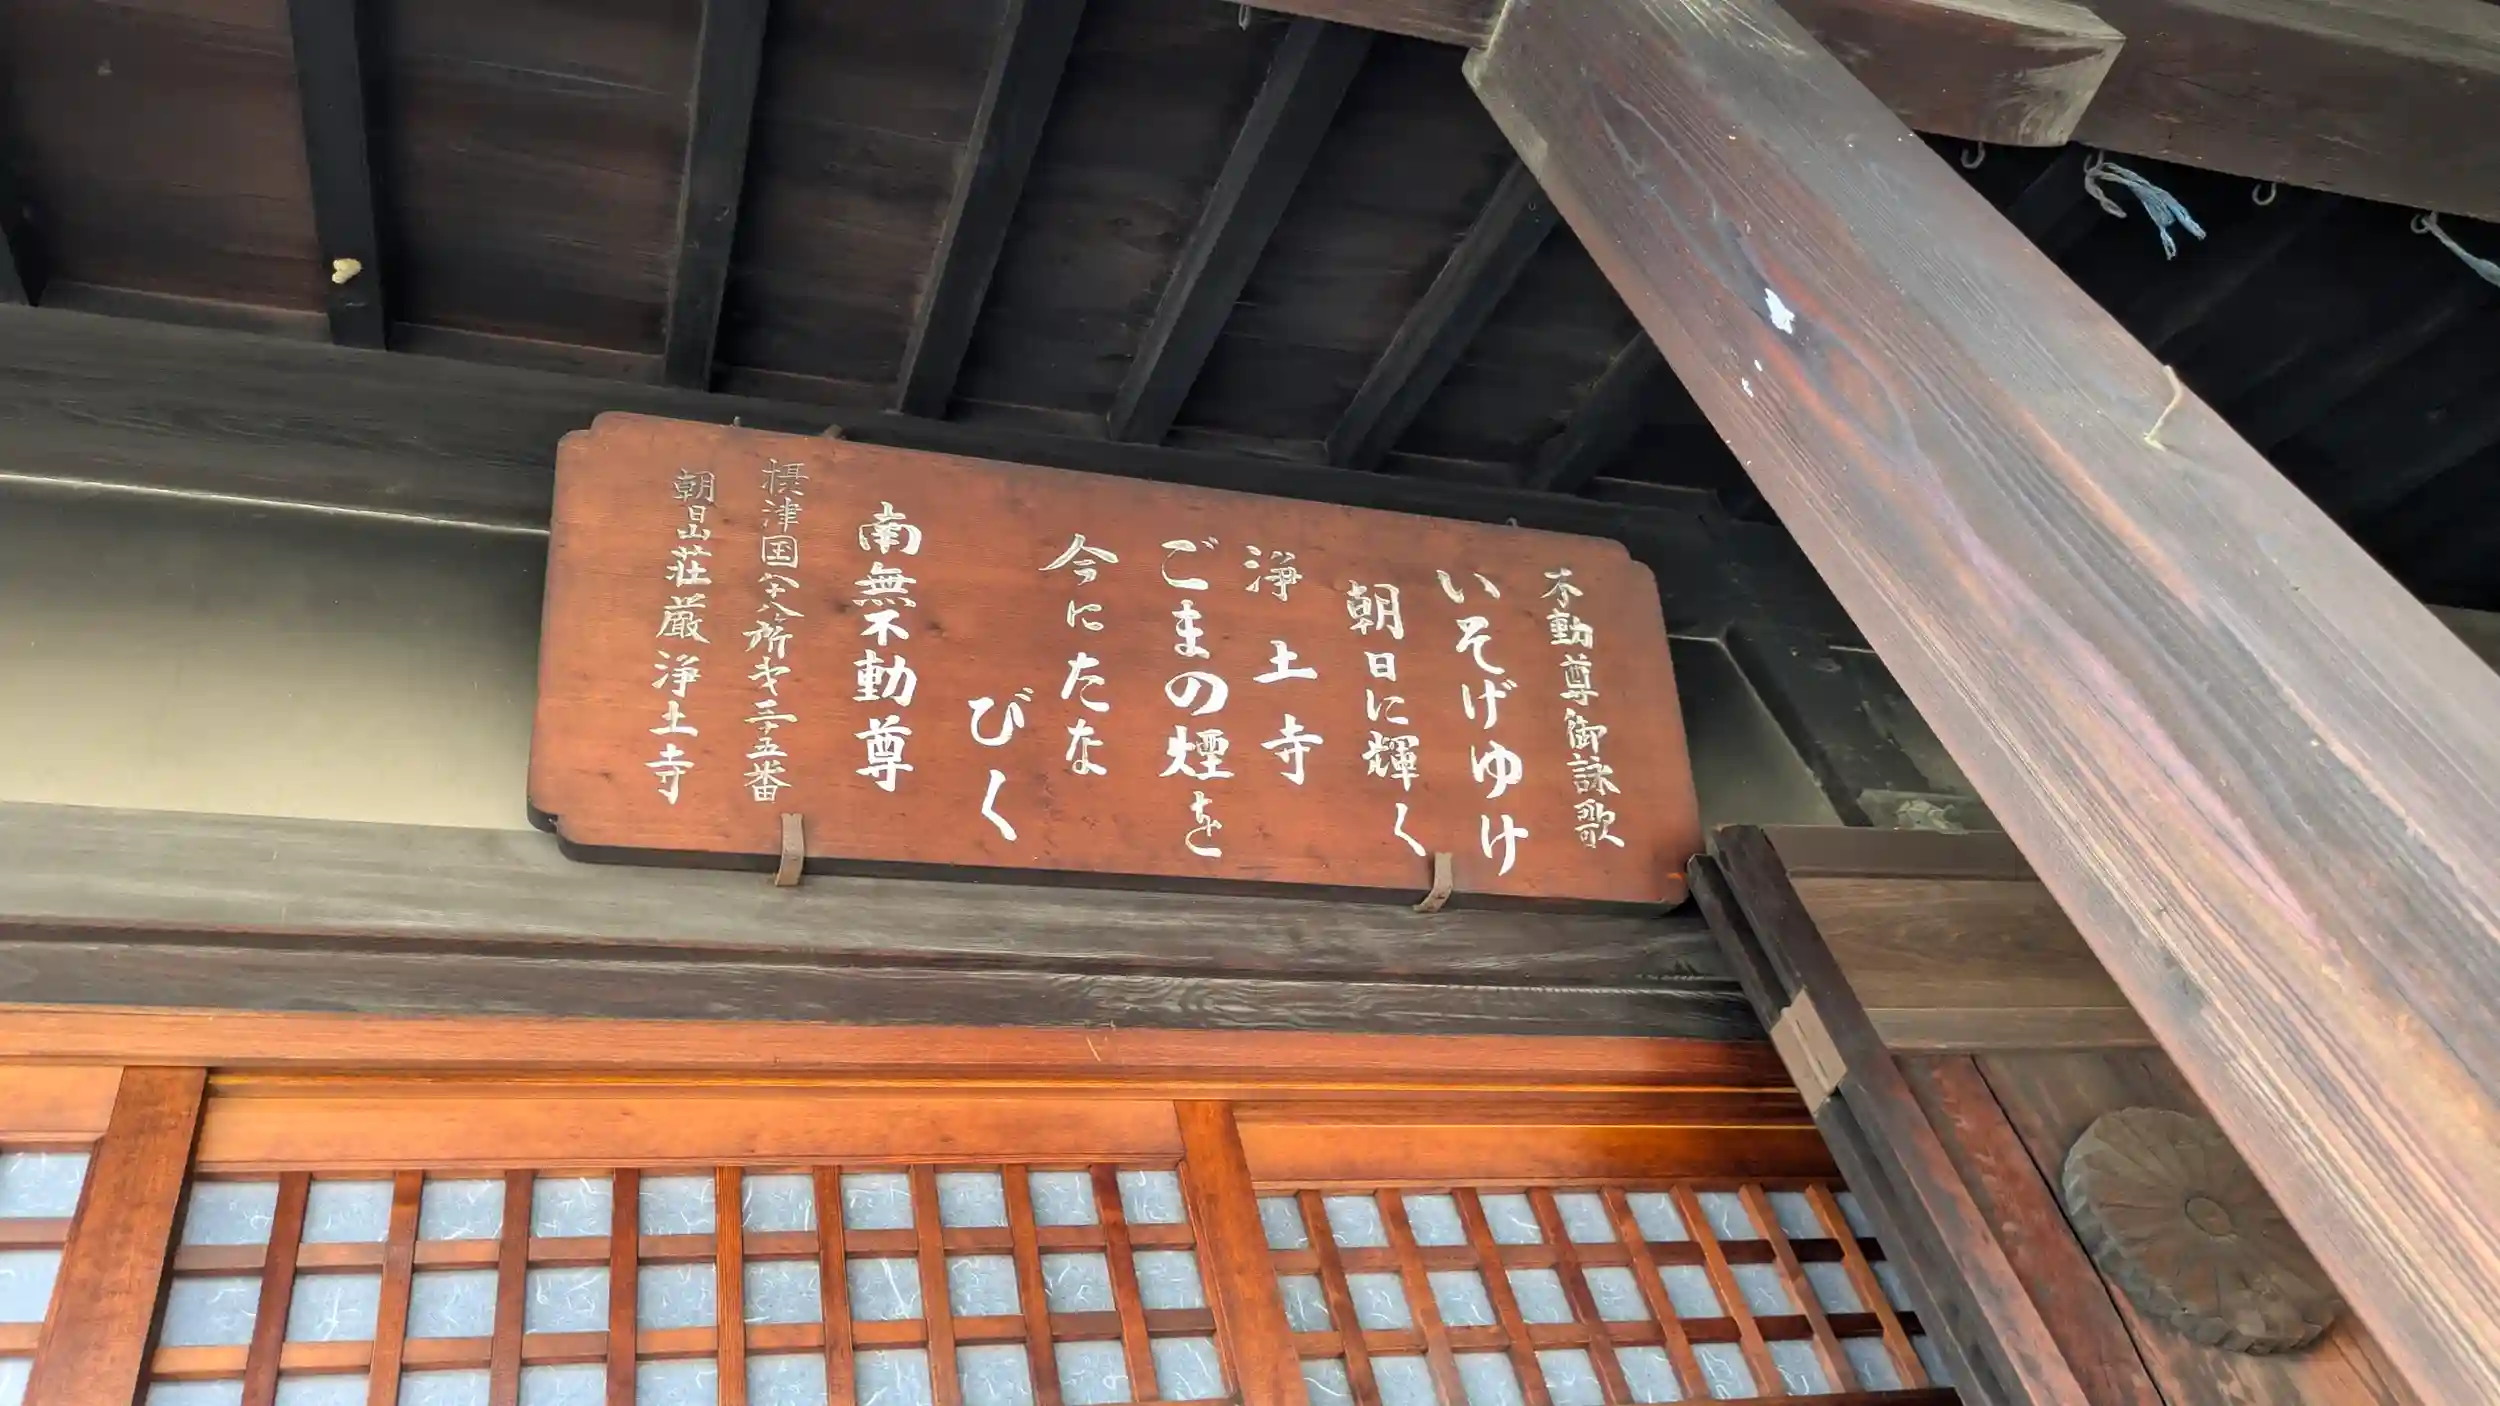 不動尊御詠歌
いそげゆけ
朝日に輝く
浄土寺
ごまの煙を
今にたな
びく
南無不動尊
摂津国八十八所第三十五番
朝日山荘厳浄土寺